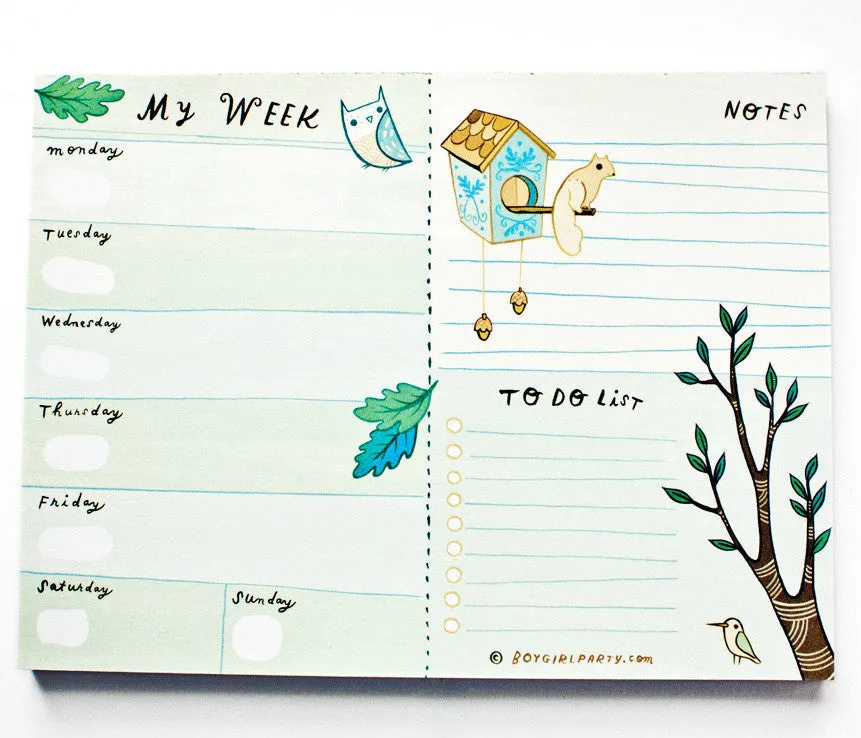 My WEEK
monday
Tuesday
Wednesday
Thursday
Friday
Saturday
Sunday
NOTES
TO DO LiST
© BOYGIRLPARTY.com